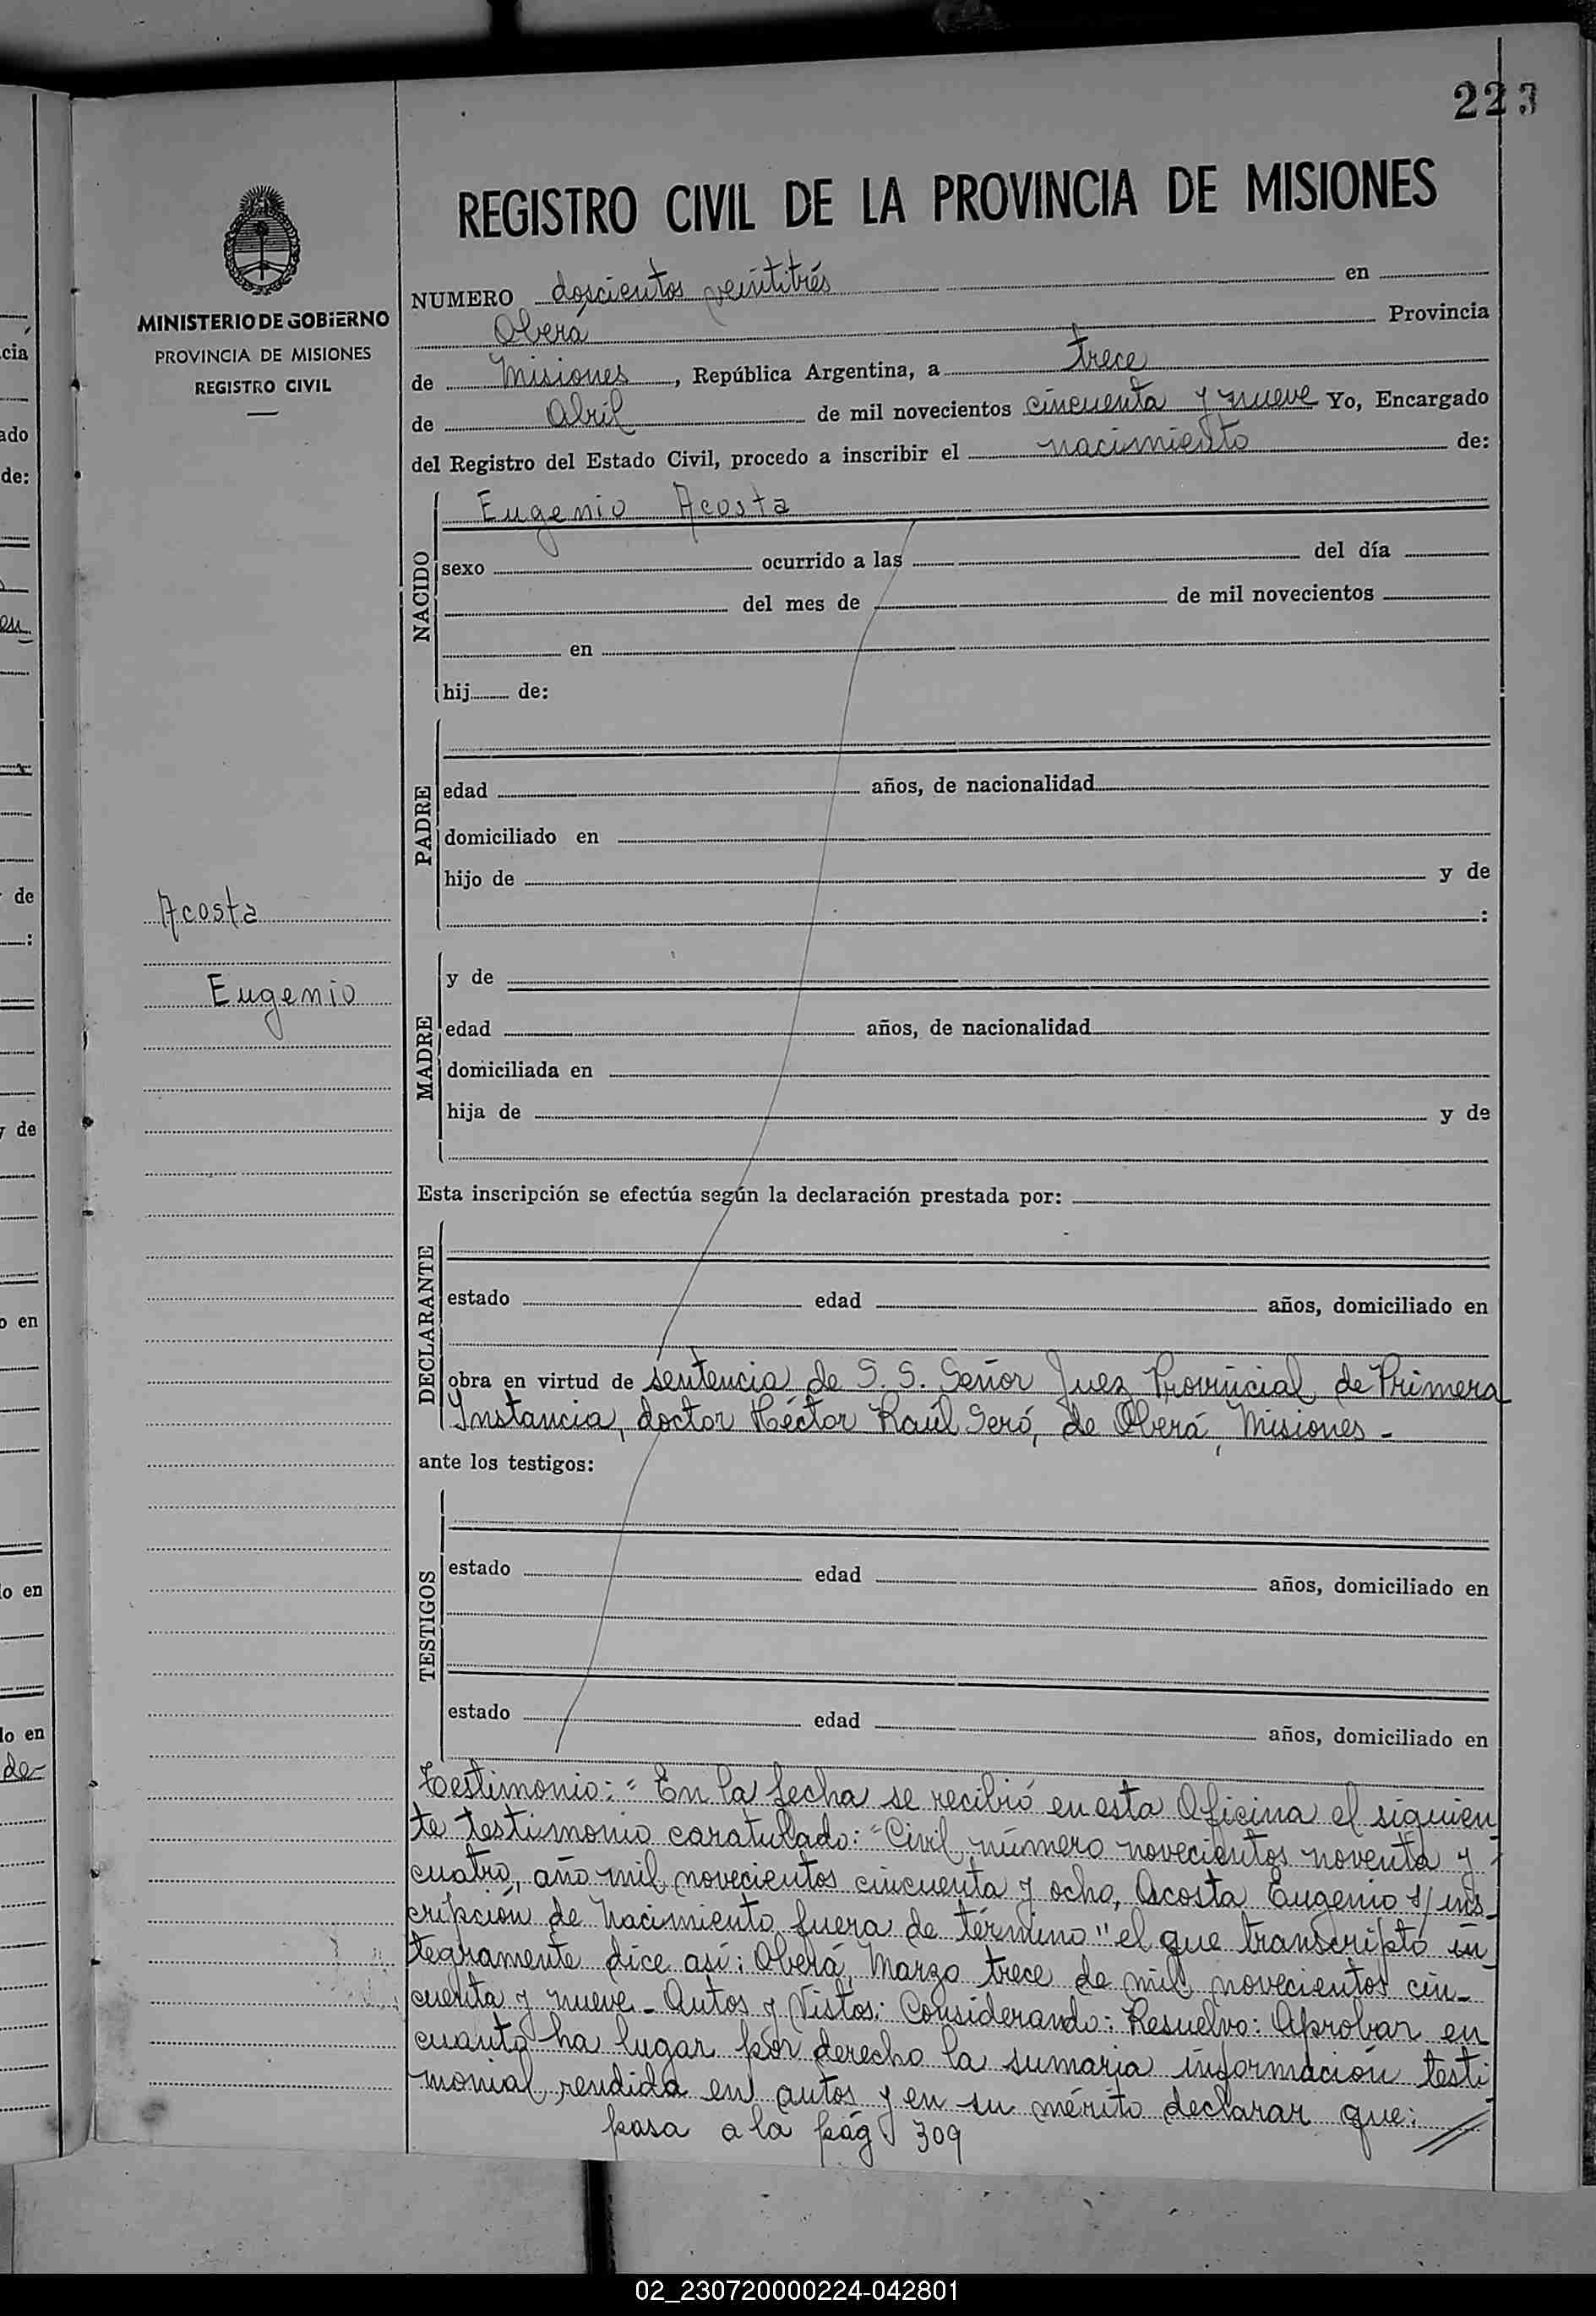 223
REGISTRO CIVIL DE LA PROVINCIA DE MISIONES
MINISTERIO DE GOBIERNO
PROVINCIA DE MISIONES
REGISTRO CIVIL
NUMERO doscientos veintitrés en
Oberá Provincia
de Misiones, República Argentina, a trece
de Abril de mil novecientos cincuenta y nueve Yo, Encargado
del Registro del Estado Civil, procedo a inscribir el nacimiento de:
NACIDO
Eugenio Acosta
sexo ocurrido a las del día
del mes de de mil novecientos
en
hij de:
PADRE
edad años, de nacionalidad
domiciliado en
hijo de y de
:
Acosta
Eugenio
MADRE
y de
edad años, de nacionalidad
domiciliada en
hija de y de
Esta inscripción se efectúa según la declaración prestada por:
DECLARANTE
estado edad años, domiciliado en
obra en virtud de sentencia de S. S. Señor Juez Provincial de Primera
Instancia, doctor Héctor Raúl Seró, de Oberá, Misiones -
ante los testigos:
TESTIGOS
estado edad años, domiciliado en
estado edad años, domiciliado en
Testimonio: "En la fecha se recibió en esta Oficina el siguien
te testimonio caratulado: "Civil número novecientos noventa y
cuatro, año mil novecientos cincuenta y ocho, Acosta Eugenio s/ ins-
cripción de Nacimiento fuera de término" el que transcripto ín
tegramente dice así: Oberá, Marzo trece de mil novecientos cin-
cuenta y nueve - Autos y Vistos: Considerando: Resuelvo: Aprobar en
cuanto ha lugar por derecho la sumaria información testi
monial rendida en autos y en su mérito declarar que: //
pasa a la pág 309
cia
ado
de:
en
de
:
y de
o en
lo en
lo en
de-
02_230720000224-042801